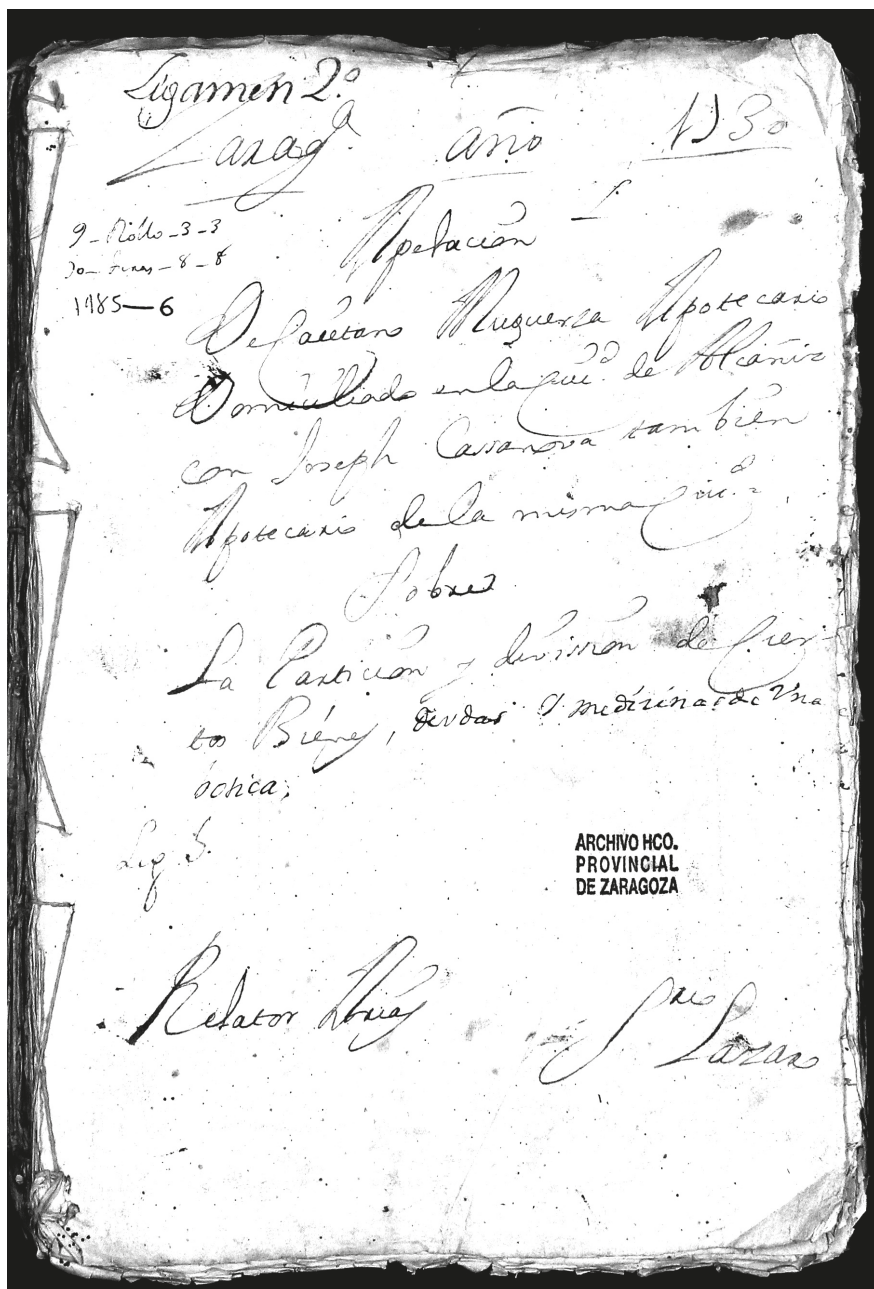 Ligamen 2.º
Zarag.ª año 1730
Apelacion
De Caietano Muguerza Apotecario
Domiciliado en la Ciu.d de Alcañiz
con Joseph Cassanova tambien
Apotecario de la misma Ciu.d
Sobre
La Particion y division de Cier-
tos Bienes, deudas y medizinas de Vna
botica.
Leg. 5.
9 - - 3 - 3
- 8 - 8
1985-6
ARCHIVO HCO.
PROVINCIAL
DE ZARAGOZA
Relator
S.rio Lazaro